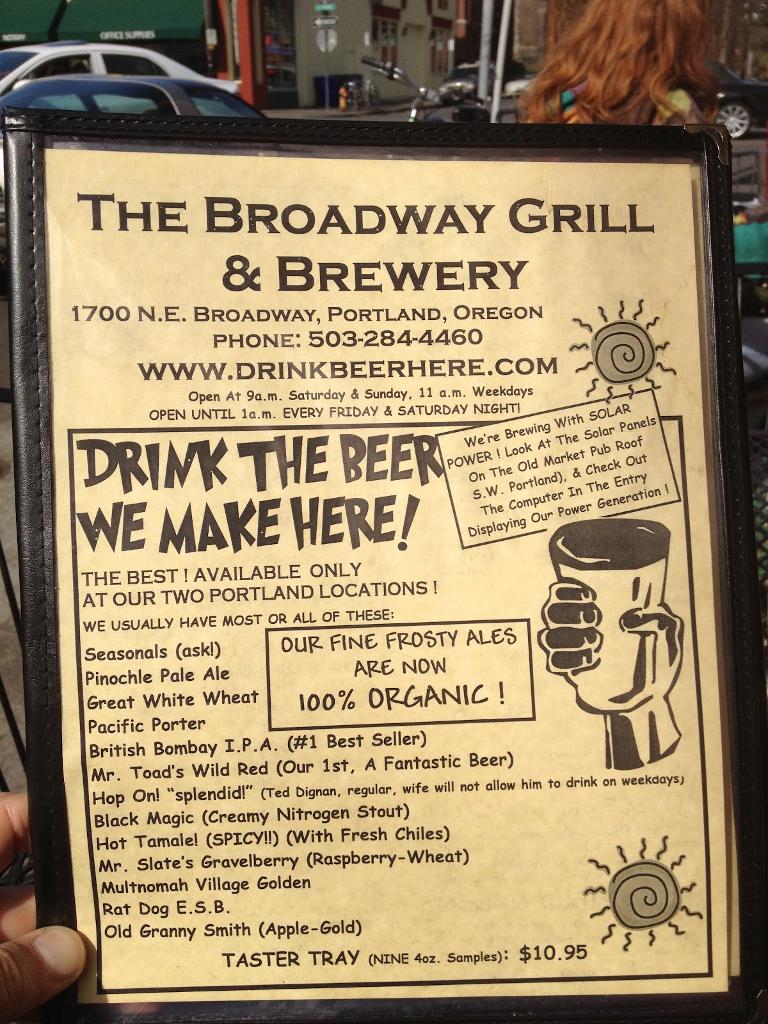 OFFICE SUPPLIES
THE BROADWAY GRILL
& BREWERY
1700 N.E. BROADWAY, PORTLAND, OREGON
PHONE: 503-284-4460
WWW.DRINKBEERHERE.COM
Open At 9a.m. Saturday & Sunday, 11 a.m. Weekdays
OPEN UNTIL 1a.m. EVERY FRIDAY & SATURDAY NIGHT!
DRINK THE BEER
WE MAKE HERE!
We're Brewing With SOLAR
POWER ! Look At The Solar Panels
On The Old Market Pub Roof
S.W. Portland), & Check Out
The Computer In The Entry
Displaying Our Power Generation !
THE BEST ! AVAILABLE ONLY
AT OUR TWO PORTLAND LOCATIONS !
WE USUALLY HAVE MOST OR ALL OF THESE:
OUR FINE FROSTY ALES
ARE NOW
100% ORGANIC !
Seasonals (ask!)
Pinochle Pale Ale
Great White Wheat
Pacific Porter
British Bombay I.P.A. (#1 Best Seller)
Mr. Toad's Wild Red (Our 1st, A Fantastic Beer)
Hop On! "splendid!" (Ted Dignan, regular, wife will not allow him to drink on weekdays)
Black Magic (Creamy Nitrogen Stout)
Hot Tamale! (SPICY!!) (With Fresh Chiles)
Mr. Slate's Gravelberry (Raspberry-Wheat)
Multnomah Village Golden
Rat Dog E.S.B.
Old Granny Smith (Apple-Gold)
TASTER TRAY (NINE 4oz. Samples): $10.95